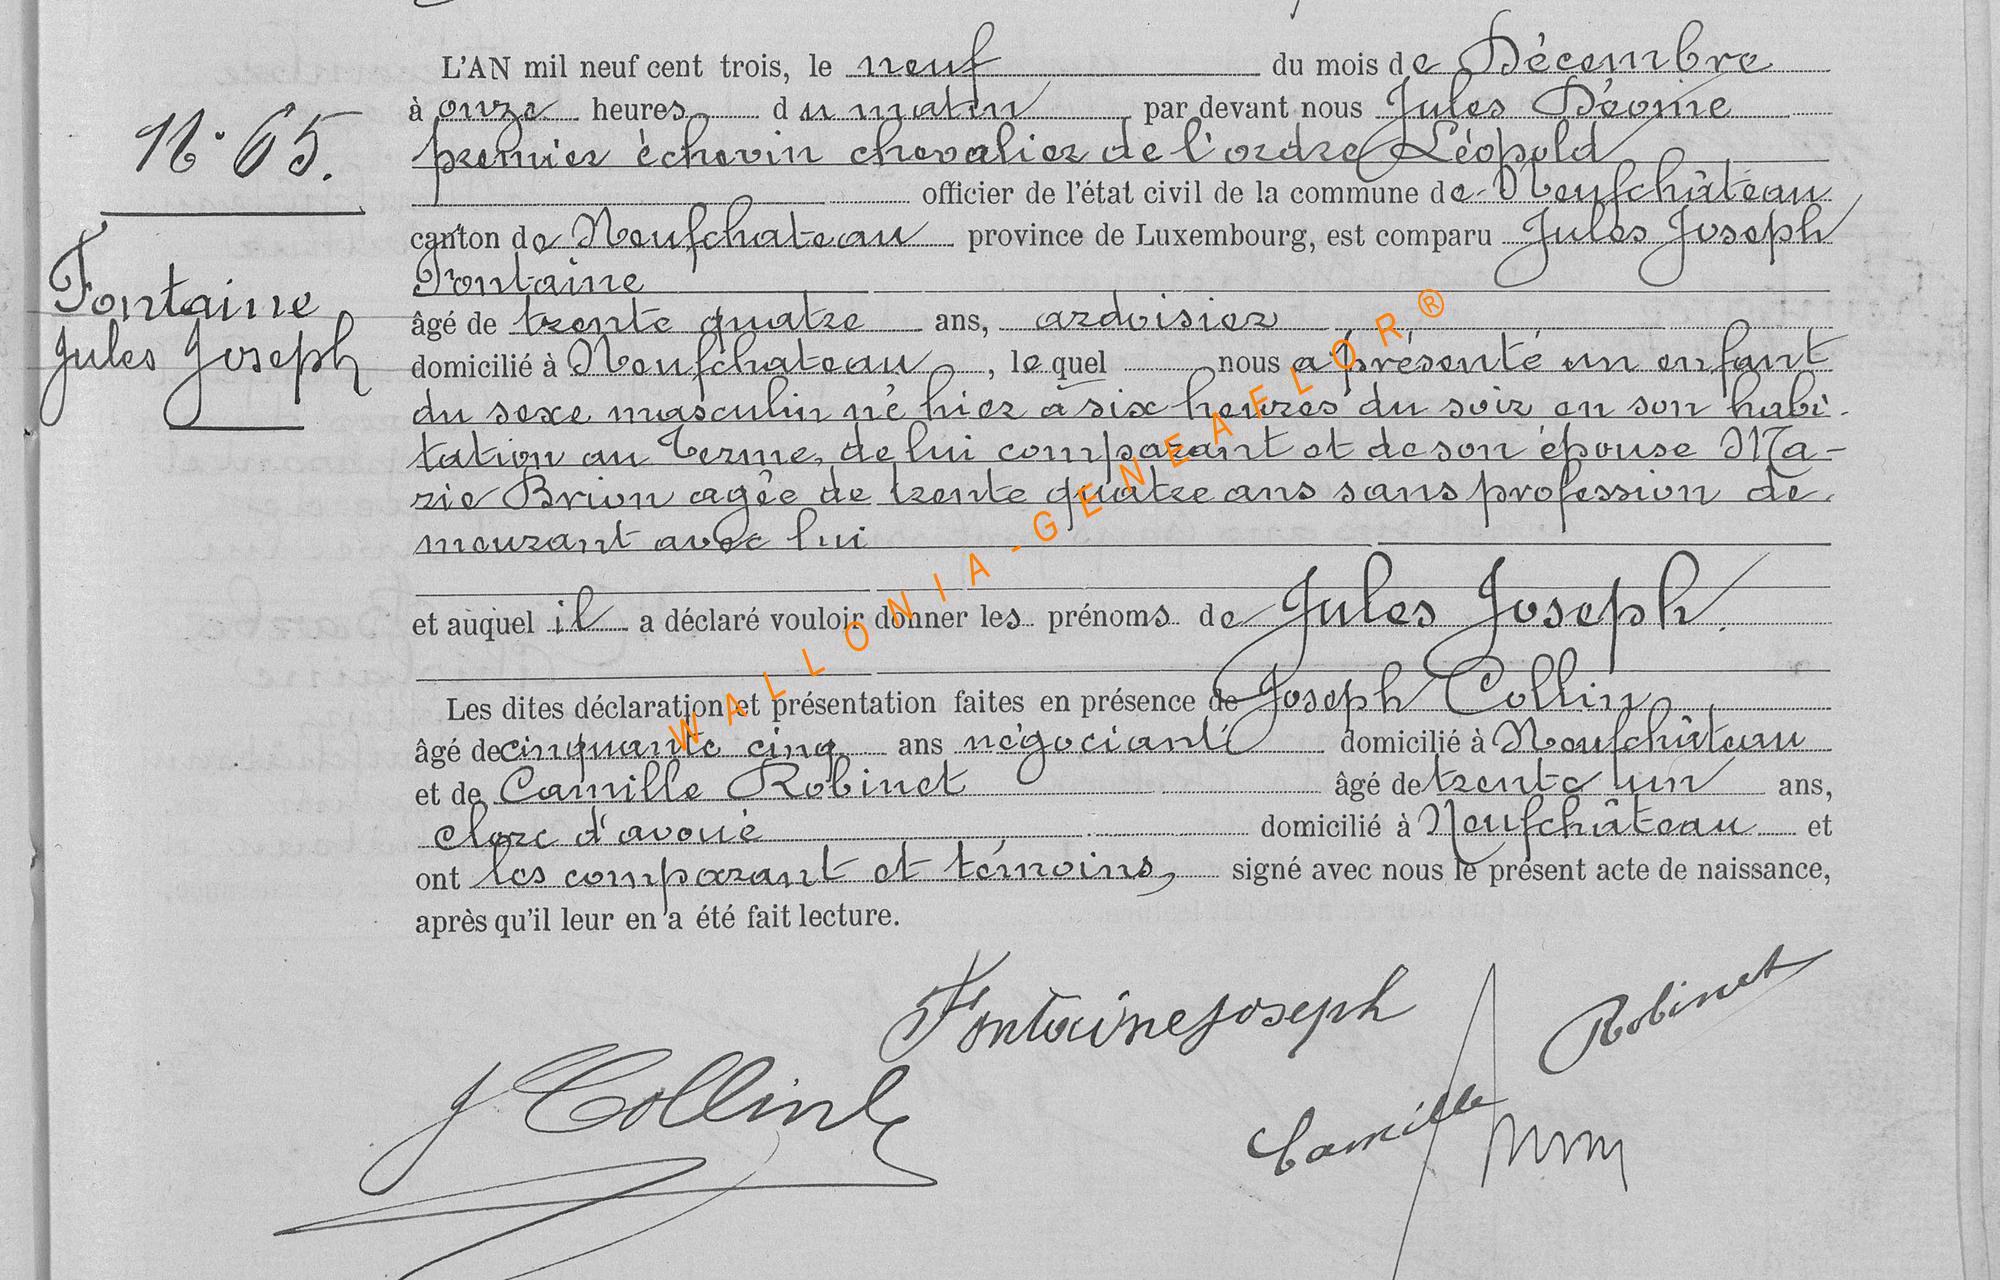 L'AN mil neuf cent trois, le neuf du mois de Décembre
à onze heures du matin par devant nous Jules Déome
N° 65.
premier échevin chevalier de l'ordre Léopold
officier de l'état civil de la commune de Neufchâteau
canton de Neufchateau province de Luxembourg, est comparu Jules Joseph
Fontaine
Fontaine
Jules Joseph
âgé de trente quatre ans, ardoisier
domicilié à Neufchateau, lequel nous a présenté un enfant
du sexe masculin né hier à six heures du soir en son habi-
tation au Terme, de lui comparant et de son épouse Ma-
rie Brion agée de trente quatre ans sans profession de-
meurant avec lui
et auquel il a déclaré vouloir donner les prénoms de Jules Joseph.
Les dites déclaration et présentation faites en présence de Joseph Collin
âgé de cinquante cinq ans négociant domicilié à Neufchâteau
et de Camille Robinet âgé de trente un ans,
clerc d'avoué domicilié à Neufchâteau et
ont les comparant et témoins, signé avec nous le présent acte de naissance,
après qu'il leur en a été fait lecture.
Fontaine Joseph
J Collin
Camille Robinet
WALLONIA-GENEAFLOR®